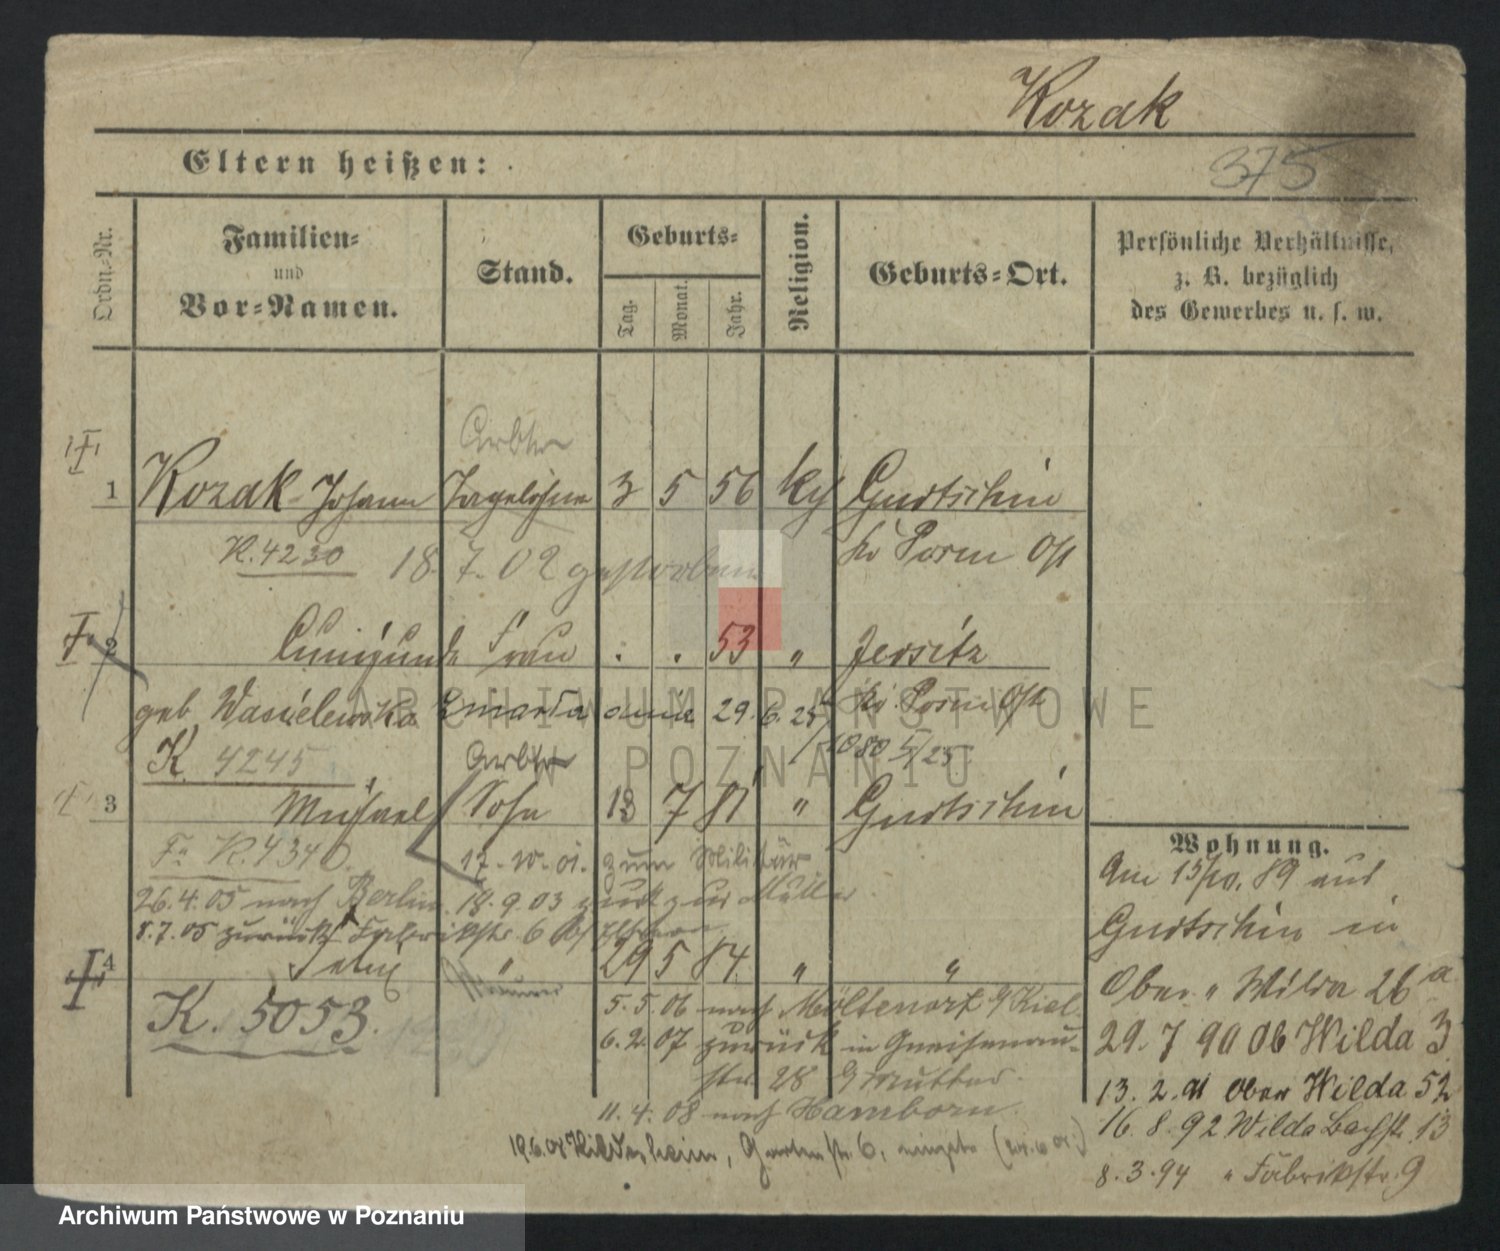 Kozak
Eltern heißen:
375
Ordn.-Nr.
Familien-
und
Vor-Namen.
Stand.
Geburts-
Tag.
Monat.
Jahr.
Religion.
Geburts-Ort.
Persönliche Verhältnisse,
z. B. bezüglich
des Gewerbes u. s. w.
Arbtr
1 Kozak Johann 3 5 56 Gurtschin
K. 4230 18. 7. 02 gestorben Posen Ost
2 Cunigunde Frau 53 " Jersitz
geb Wasielewska 29. 6. 25 Posen Ost
K 4245
Arbtr
3 Michael Sohn 13 7 81 " Gurtschin
K. 4340. 17. 10. 01. zum Militär
26. 4. 05 nach Berlin. 18. 9. 03 zur Mutter
8. 7. 05 zurück Fabrikstr. 6
4 " 29 5 84 " "
Maurer
K. 5053.
5. 5. 06 nach Möltenort Kiel
6. 2. 07 zurück in Gneisenau-
str. 28 Mutter.
11. 4. 08 nach Hamborn.
Hildesheim, Gartenstr. 6,
Wohnung.
Am 15/10. 89 aus
Gurtschin in
Ober " Wilda 26a
29. 7 90 Ob Wilda 3
13. 2. 91 Ober Wilda 52
16. 8. 92 Wilda Bachstr. 13
8. 3. 94 " Fabrikstr. 9
ARCHIWUM PAŃSTWOWE
W POZNANIU
Archiwum Państwowe w Poznaniu